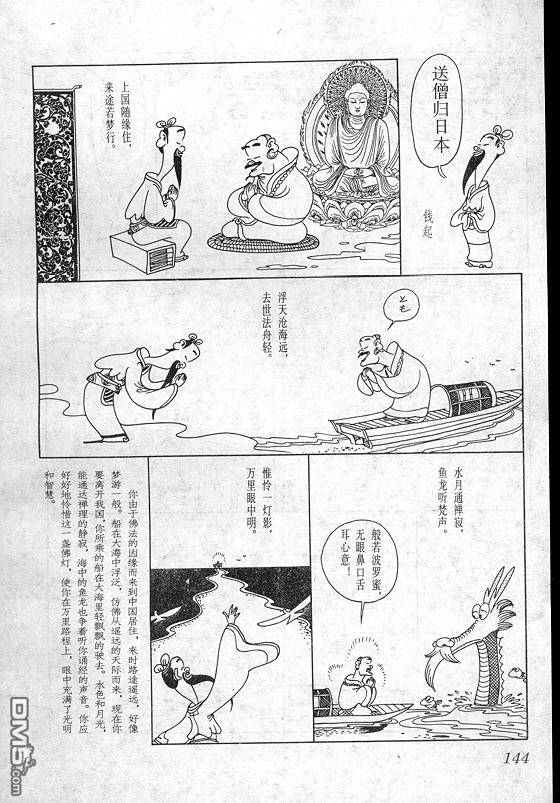 送僧归日本
钱起
上国随缘住，
来途若梦行。
浮天沧海远，
去世法舟轻。
とも
水月通禅寂，
鱼龙听梵声。
般若波罗蜜，
无眼鼻口舌
耳心意！
惟怜一灯影，
万里眼中明。
你由于佛法的因缘而来到中国居住，来时路途遥远，好像
梦游一般。船在大海中浮泛，仿佛从遥远的天际而来，现在你
要离开我国，你所乘的船在大海里轻飘飘的驶去。水色和月光，
能通达禅理的静寂，海中的鱼龙也争着听你诵经的声音。你应
好好地怜惜这一盏佛灯，使你在万里路程上，眼中充满了光明
和智慧。
144
DM5.com